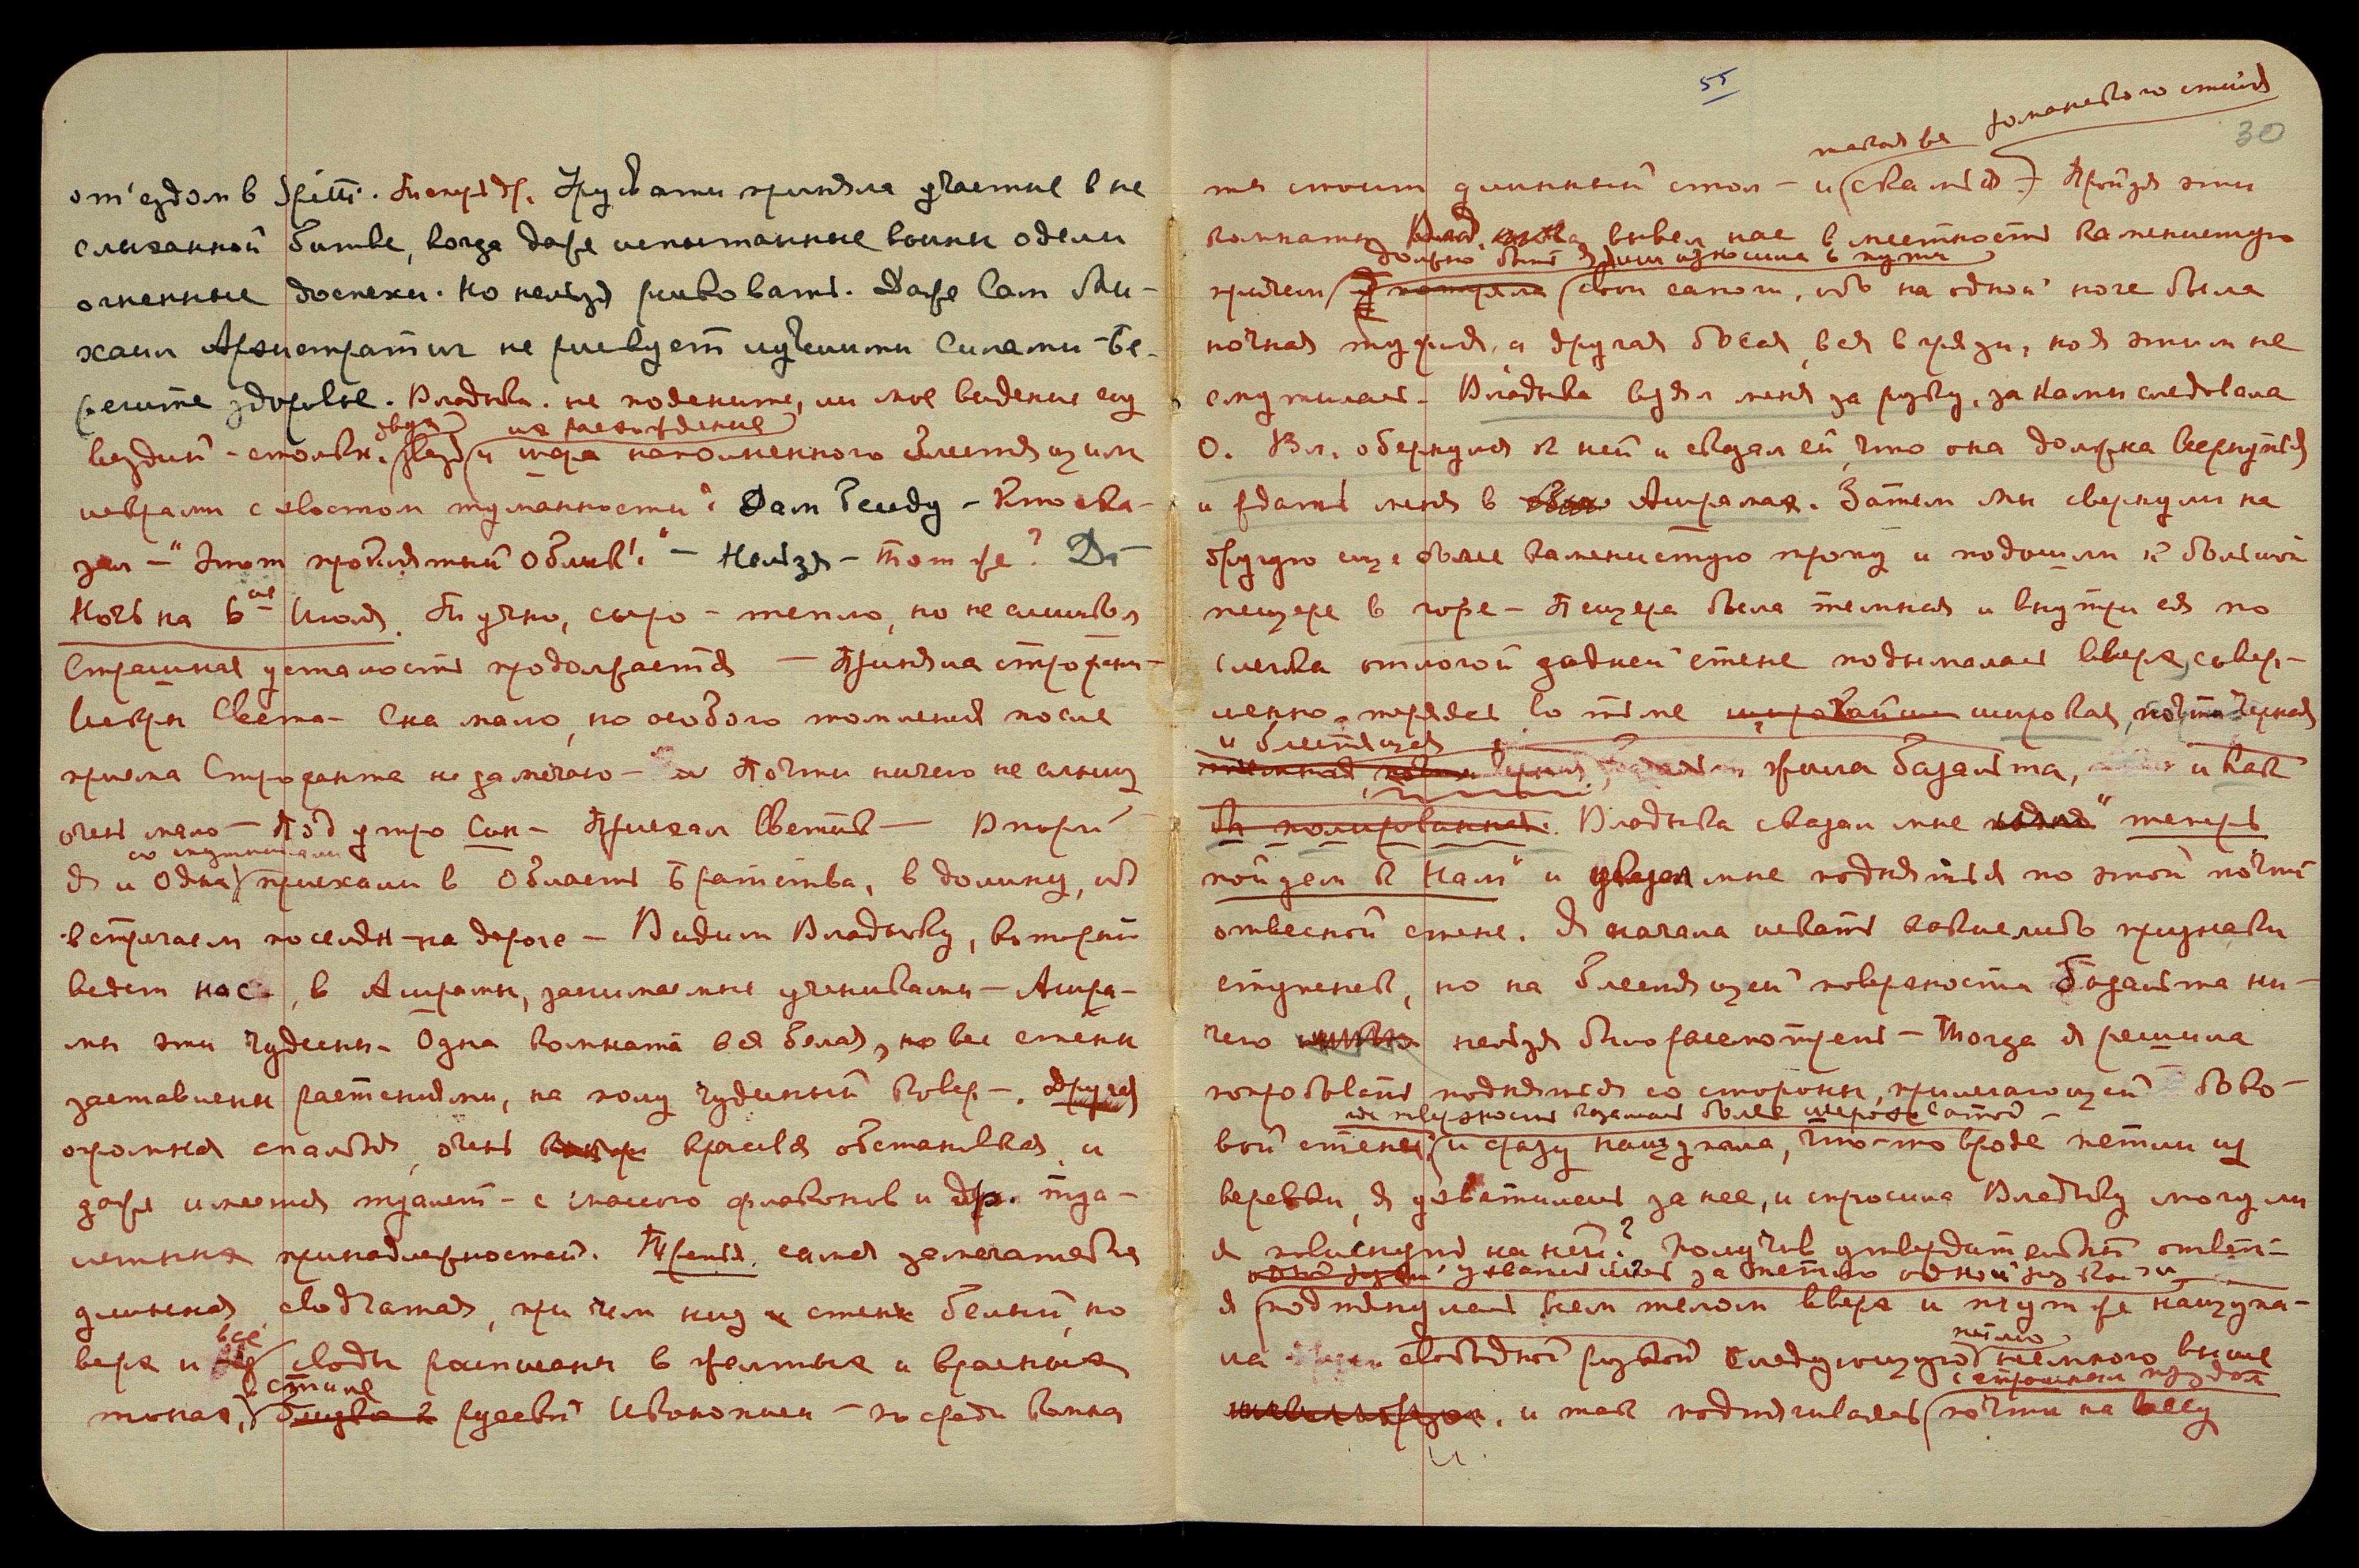 от'ездом в Spitti. Урусвати приняла участие в не
слыханной битве, когда даже испытанные воины одели
огненные доспехи. Но нельзя рисковать. Даже Сам Ми-
хаил Архистратиг не рискует лучшими Силами – Бе-
регите здоровье. Владыка. не поясните, ли мое видение
звука их расхождение
и шара наполненного блестящими
искрами с хвостом туманности? Дам беседу – Кто ска-
зал – "Этот проклятый облик!" – Нельзя – Тот же? Да
Ночь на 6ое Июля. Тучно, сыро – тепло, но не слишком
Страшная усталость продолжается –
Искры Света – Сна мало, но особого томления после
приема Строфанта не замечаю – Почти ничего не слышу
очень мало – Под утро Сон – Приехал Светик –
со спутниками
Я и Одна приехали в Область Братства, в долину, где
встречаем поселян на дороге – Видим Владыку, который
ведет нас, в Ашрамы, занимаемые учениками – Ашра-
мы эти чудесны – Одна комната вся белая, но все стены
заставлены растениями, на полу чудесный ковер –. Другая
огромная спальня, очень красивая обстановка, и
даже имеется туалет – с массою флаконов и др. туа-
летных принадлежностей. Третья, самая замечательная
длинная сводчатая, при чем низ стен белый, но
все
верх и своды расписаны в желтых и красных
стиле
тонах, в близко к русской Иконописи – посреди комна
55
30
такая же романского стиля
ты стоит длинный стол – и скамья –) Пройдя эти
комнаты Влад. вывел нас в местность каменистую
должно быть я их износила в пути
причем я потеряла свои сапоги, ибо на одной ноге была
ночная туфля, а другая босая, вся в грязи, но я этим не
смутилась – Владыка взял меня за руку, за нами следовала
О. Вл. обернулся к ней и сказал ей, что она должна вернуться
и ждать меня в Ашрамах. Затем мы свернули на
другую еще более каменистую тропу и подошли к большой
пещере в горе – Пещера была темная и внутри ея по
слегка отлогой задней стене подымалась вверх, совер-
шенно теряясь во тьме широкая, почти черная
и блестящая
жила базальта, и как
бы полированная. Владыка сказал мне "теперь
пойдем к Нам" и указал мне подняться по этой почти
отвесной стене. Я начала искать какие либо признаки
ступенек, но на блестящей поверхности базальта ни-
чего нельзя было рассмотреть – Тогда я решила
попробовать подняться со стороны, прилегающей боко-
где поверхность казалась более шероховатой –
вой стены и сразу нащупала, что-то вроде петли из
веревки, я ухватилась за нее, и спросила Владыку могу ли
я повиснуть на ней? Получив утвердительный ответ –
ухватившись за петлю одной рукой
я подтянулась всем телом вверх и тут же нащупа-
петлю
ла свободной рукой следующую немного выше
с страшным трудом
и так подтягиваясь почти на весу